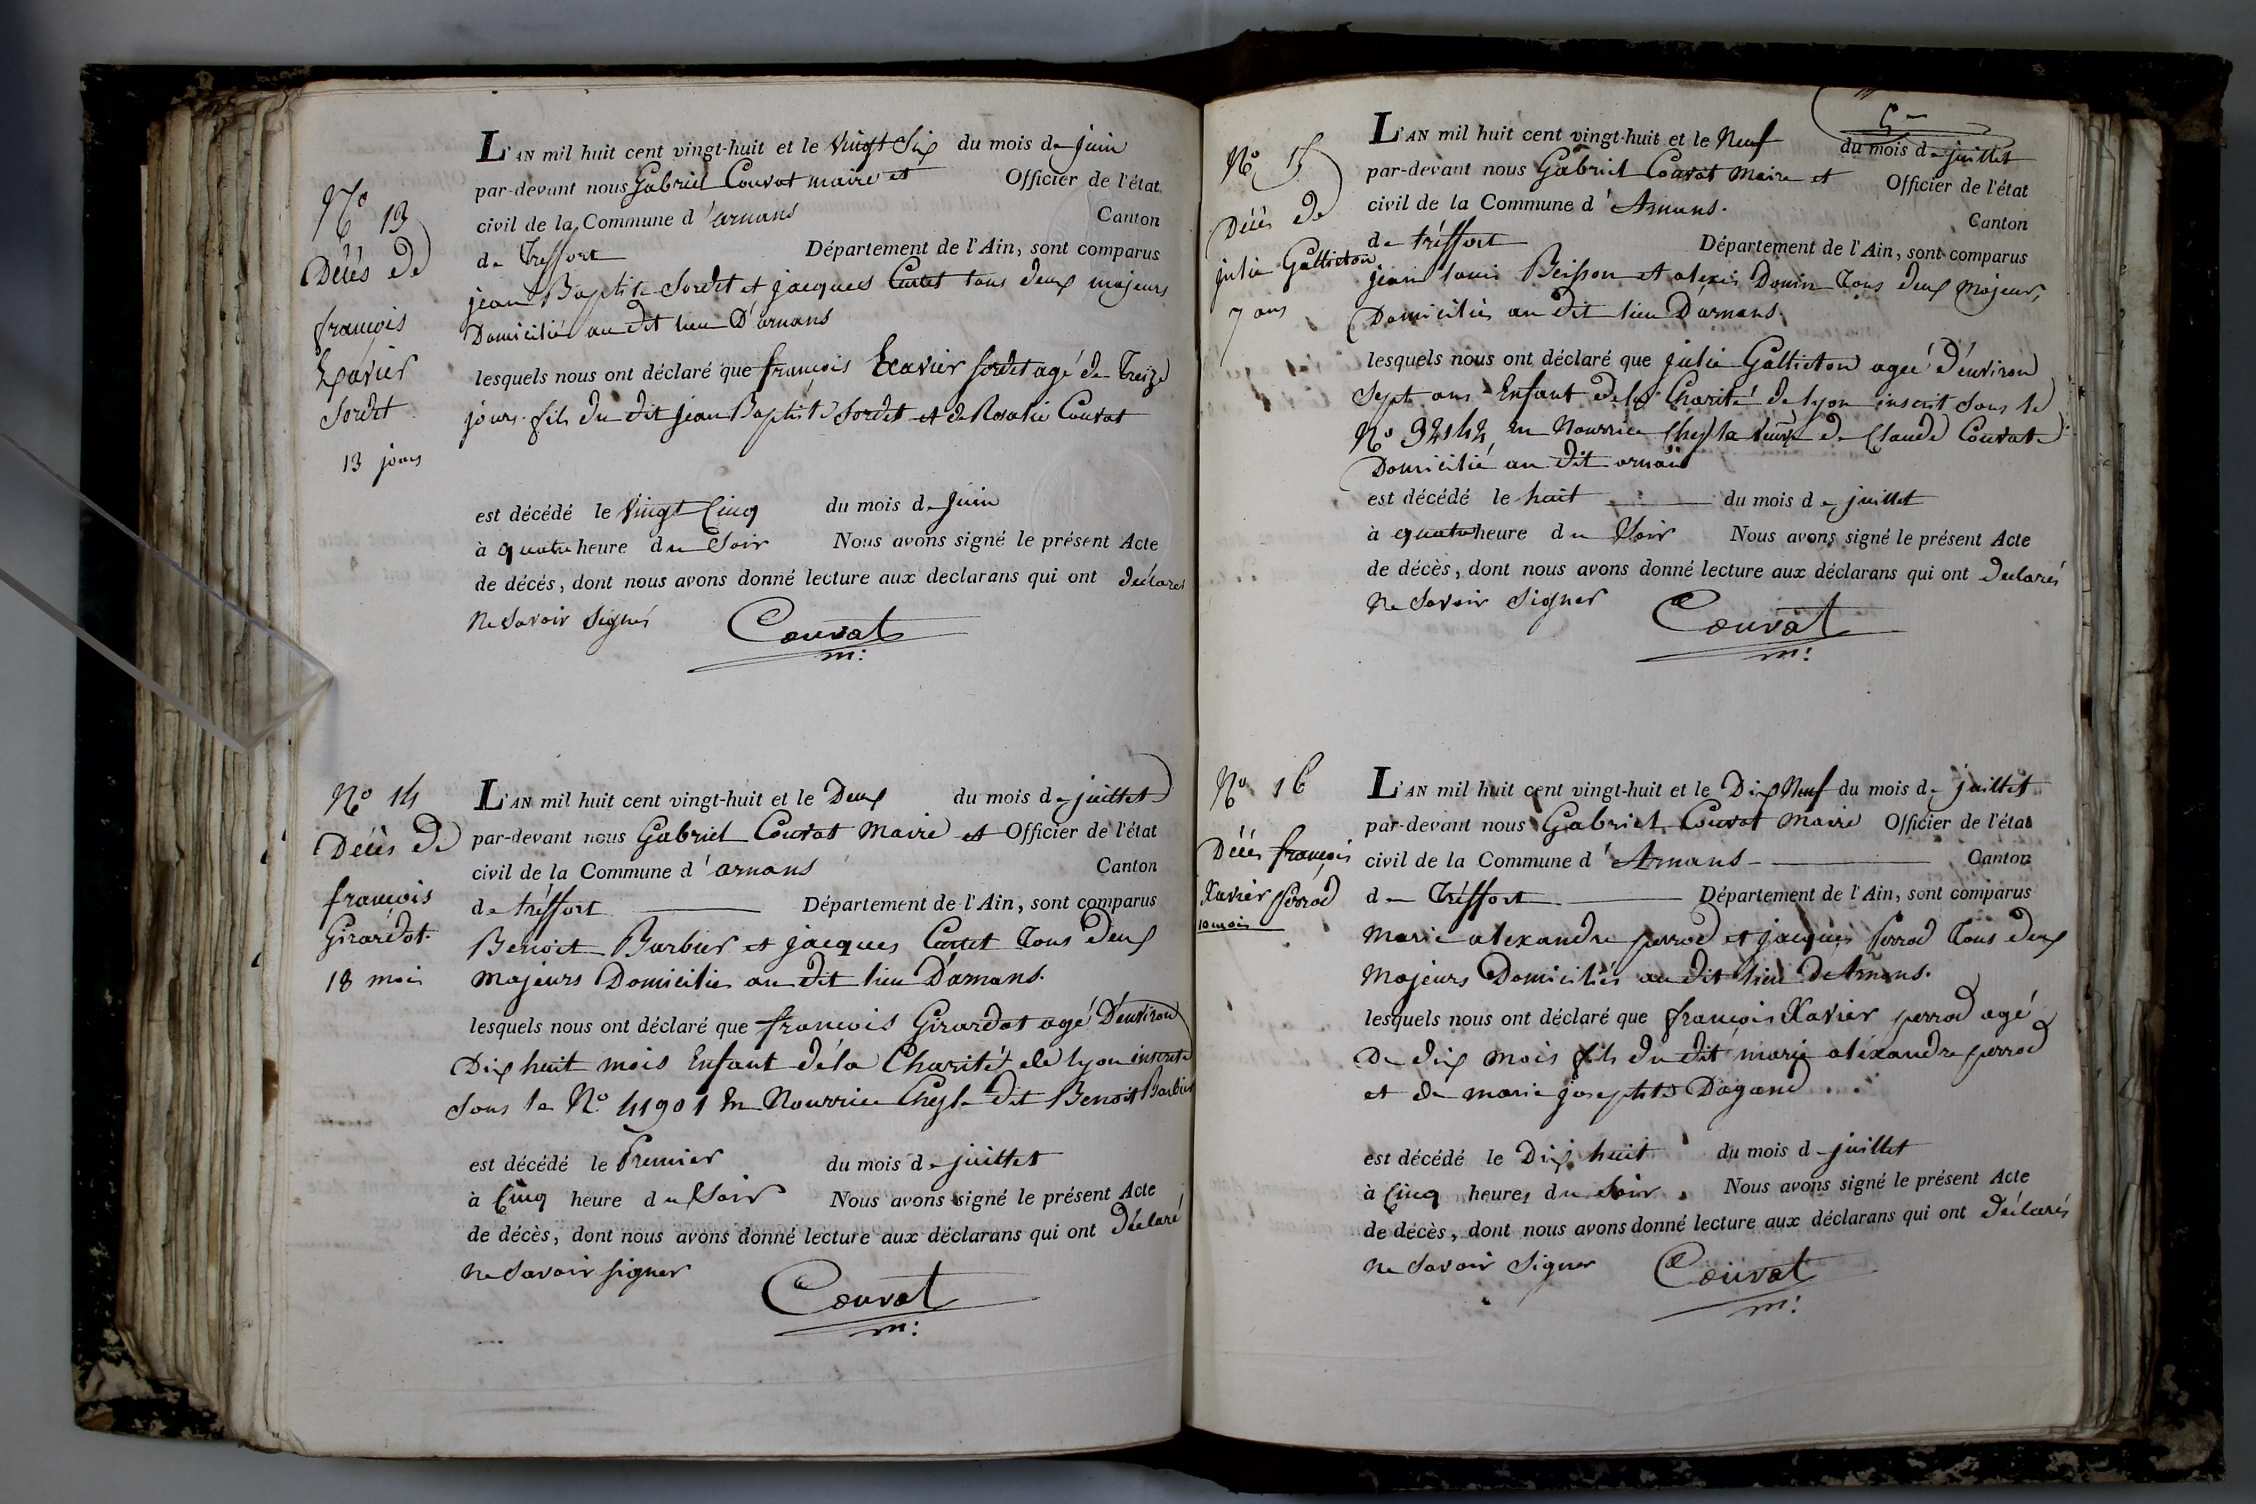 N.o 13
Décès de
françois
Xavier
Sordet
13 jours
L'AN mil huit cent vingt-huit et le vingt Six du mois de juin
par-devant nous Gabriel Couvat maire et Officier de l'état
civil de la Commune d'arnans Canton
de Treffort Département de l'Ain, sont comparus
jean Baptiste Sordet et jacques Cartet tous deux majeurs
Domicilié au dit lieu D'arnans
lesquels nous ont déclaré que françois Xavier Sordet agé de Treize
jours fils du dit jean Baptiste Sordet et de Rosalie Couvat
est décédé le vingt Cinq du mois de juin
à quatre heure du Soir Nous avons signé le présent Acte
de décés, dont nous avons donné lecture aux declarans qui ont déclarés
ne Savoir Signés
Couvat
m:
N.o 14
Décès de
françois
Girardot
18 mois
L'AN mil huit cent vingt-huit et le Deux du mois de juillet
par-devant nous Gabriel Couvat Maire et Officier de l'état
civil de la Commune d'arnans Canton
de tréffort Département de l'Ain, sont comparus
Benoit Barbier et jacques Cartet Tous Deux
Majeurs Domiciliés au dit lieu D'arnans.
lesquels nous ont déclaré que francois Girardot agé D'environ
Dix huit mois Enfant de la Charité de lyon inscrite
Sous le N.o 41901 En Nourrice Chez le dit Benoit Barbier
est décédé le Premier du mois de juillet
à Cinq heure du Soir Nous avons signé le présent Acte
de décès, dont nous avons donné lecture aux déclarans qui ont Déclaré
ne Savoir signer
Couvat
m:
5
N.o 15
Décès de
julie Gallieton
7 ans
L'AN mil huit cent vingt-huit et le Neuf du mois de juillet
par-devant nous Gabriel Couvat Maire et Officier de l'état
civil de la Commune d'Arnans. Canton
de tréffort Département de l'Ain, sont comparus
jean louis Beisson et alexis Donin Tous deux Majeurs,
Domiciliés au dit lieu Darnans.
lesquels nous ont déclaré que julie Gallieton agée d'environ
Sept ans Enfant de la Charité de lyon inscrit Sous le
N.o 32142 en Nourrice Chez la veuve de Claude Couvat
Domicilié au dit arnans
est décédé le huit du mois de juillet
à quatre heure du Soir Nous avons signé le présent Acte
de décès, dont nous avons donné lecture aux déclarans qui ont Declarés
ne Savoir Signer
Couvat
m:
N.o 16
Décès françois
Xavier perrod
10 mois
L'AN mil huit cent vingt-huit et le Dix Neuf du mois de juillet
par-devant nous Gabriel Couvat Maire Officier de l'état
civil de la Commune d'Arnans Canton
de Tréffort Département de l'Ain, sont comparus
Marie alexandre perrod et jacques perrod Tous deux
Majeurs Domiciliés au dit lieu De Arnans.
lesquels nous ont déclaré que françois Xavier perrod agé
De dix mois fils du dit marie aléxandre perrod
et de marie josephte Dagand
est décédé le Dix huit du mois de juillet
à Cinq heures du Soir Nous avons signé le présent Acte
de décès, dont nous avons donné lecture aux déclarans qui ont Déclarés
ne Savoir Signer
Couvat
m: